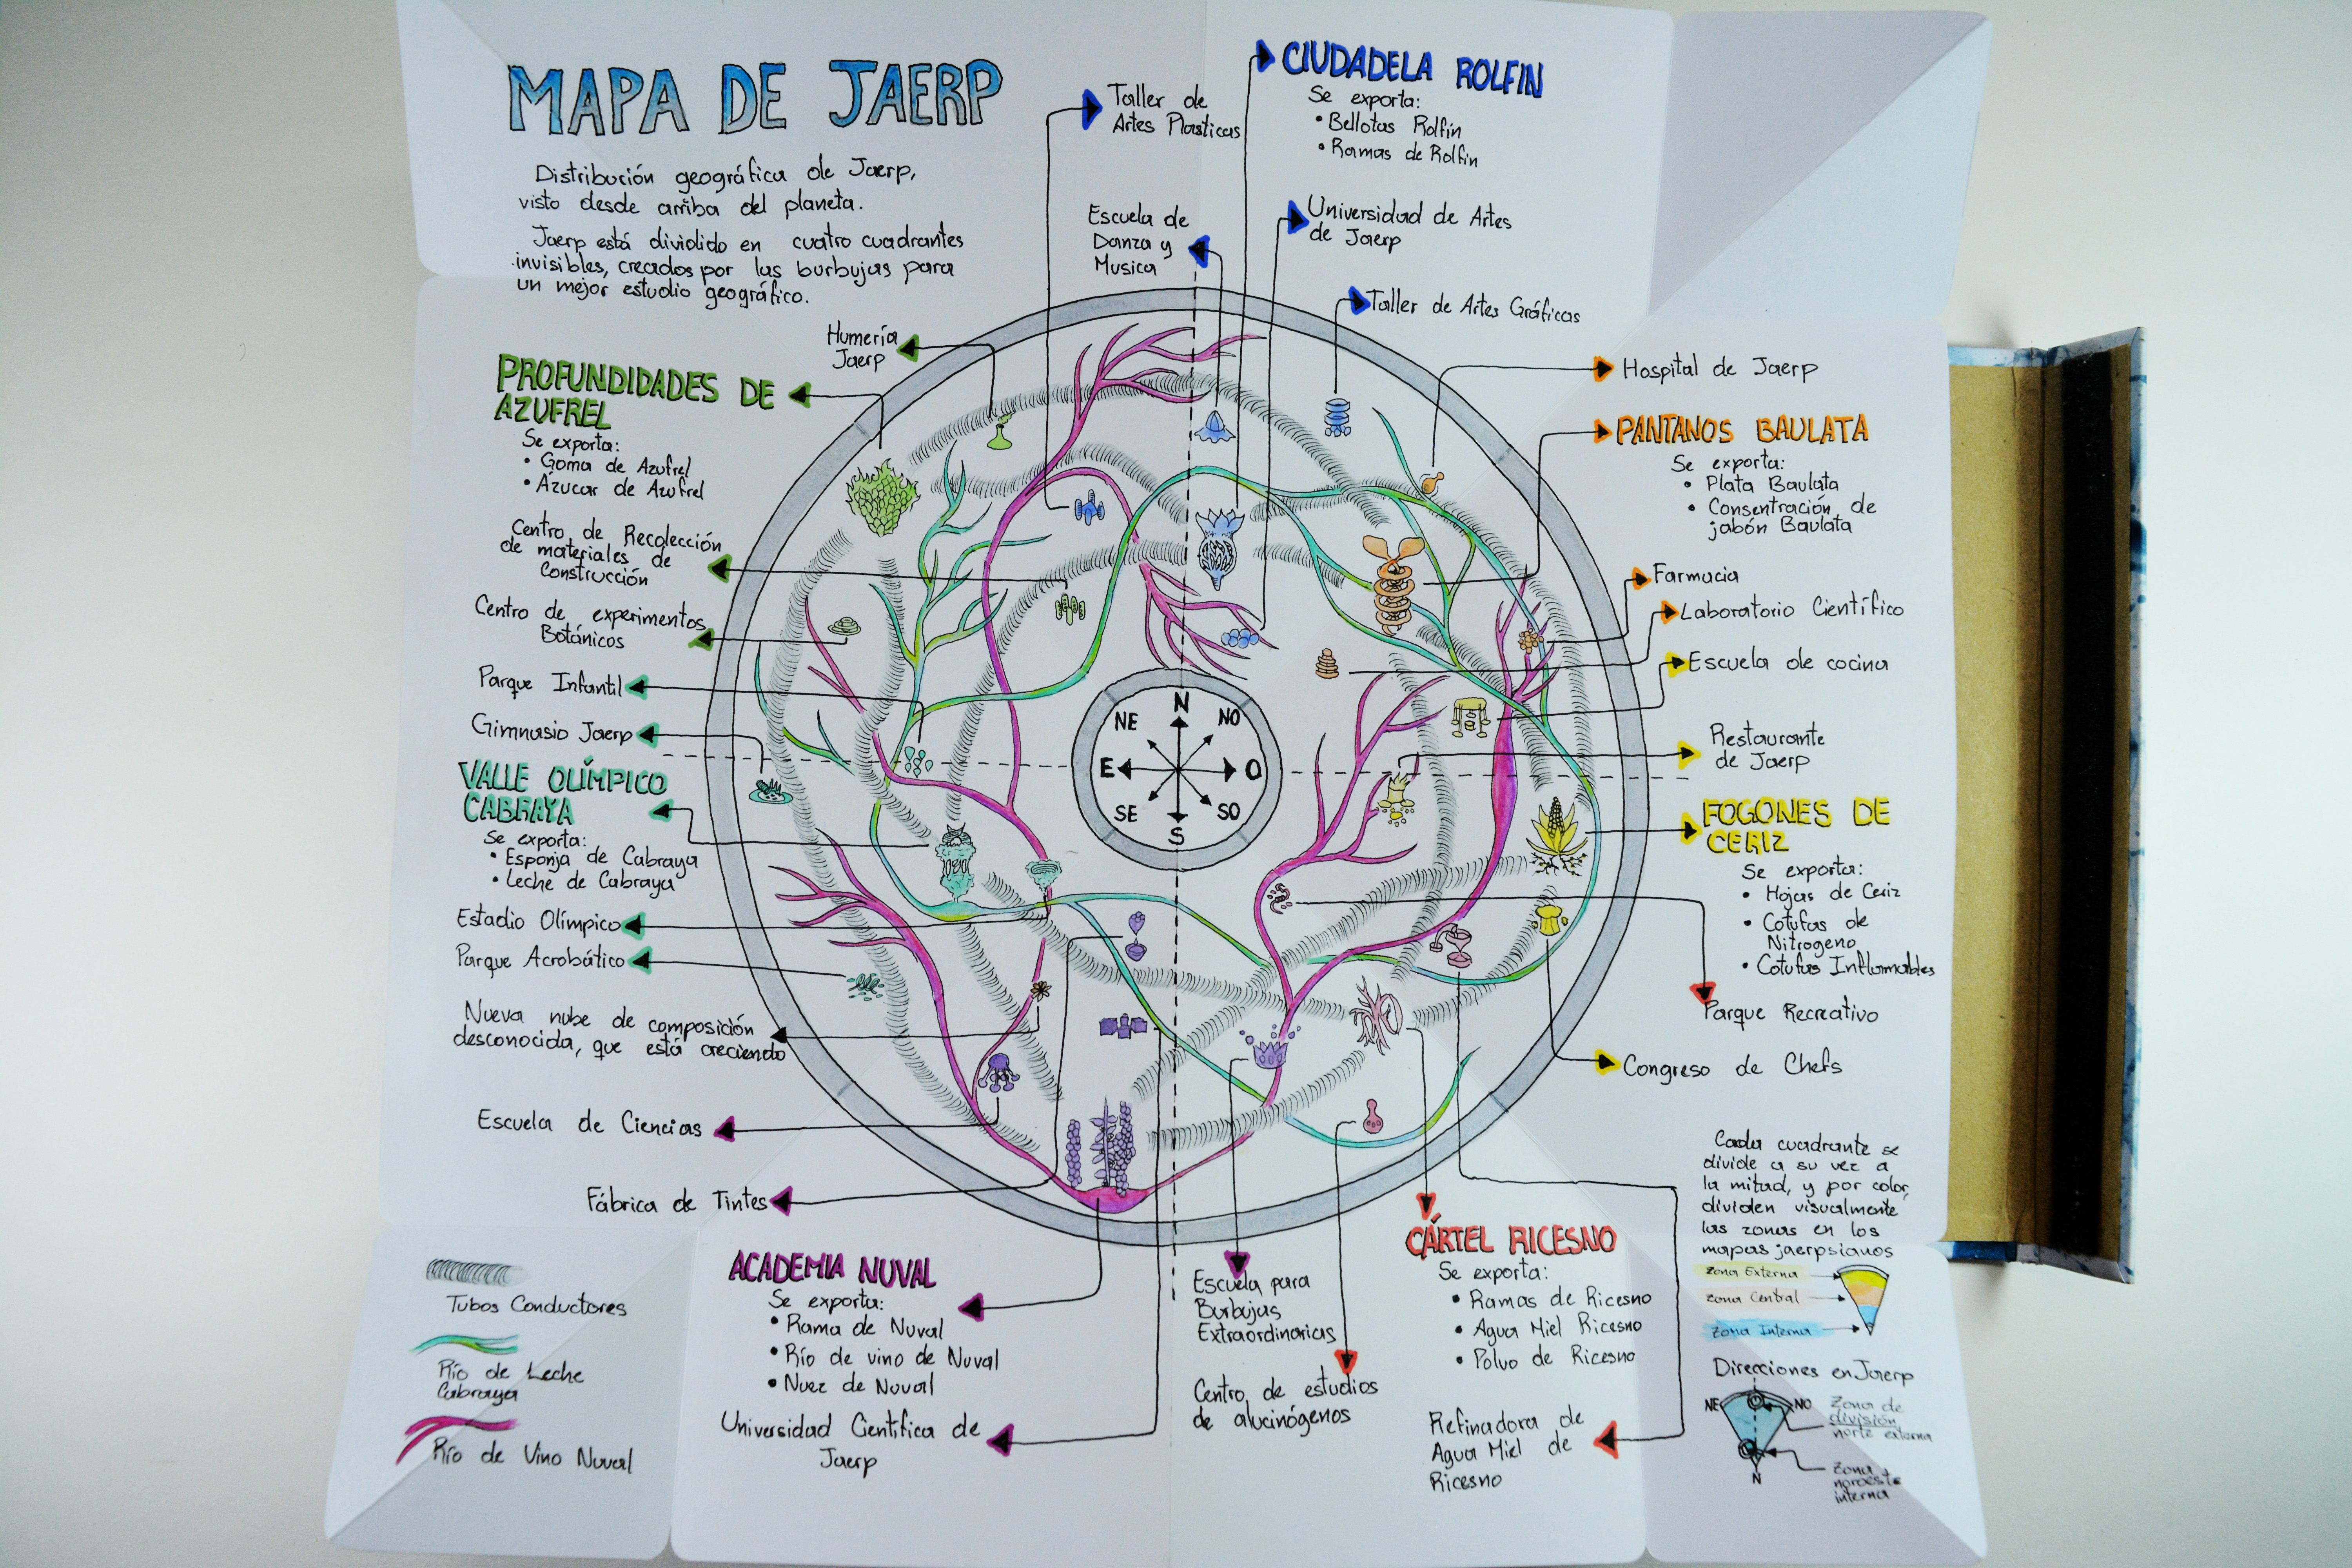 MAPA DE JAERP
Distribución geográfica de Jaerp,
visto desde arriba del planeta.
Jaerp está dividido en cuatro cuadrantes
invisibles, creados por las burbujas para
un mejor estudio geográfico.
Taller de
Artes Plasticas
CIUDADELA ROLFIN
Se exporta:
• Bellotas Rolfin
• Ramas de Rolfin
Escuela de
Danza y
Musica
Universidad de Artes
de Jaerp
Taller de Artes Gráficas
Humería
Jaerp
PROFUNDIDADES DE
AZUFREL
Se exporta:
• Goma de Azufrel
• Ázucar de Azufrel
Centro de Recolección
de materiales de
Construcción
Centro de experimentos
Botánicos
Parque Infantil
Gimnasio Jaerp
VALLE OLÍMPICO
CABRAYA
Se exporta:
• Esponja de Cabraya
• Leche de Cabraya
Estadio Olímpico
Parque Acrobático
Nueva nube de composición
desconocida, que está creciendo
Escuela de Ciencias
Fábrica de Tintes
N
NE
NO
E
O
SE
SO
S
Hospital de Jaerp
PANTANOS BAULATA
Se exporta:
• Plata Baulata
• Consentración de
jabón Baulata
Farmacia
Laboratorio Científico
Escuela de cocina
Restaurante
de Jaerp
FOGONES DE
CERIZ
Se exporta:
• Hojas de Ceriz
• Cotufas de
Nitrogeno
• Cotufas Inflamables
Parque Recreativo
Congreso de Chefs
Cada cuadrante se
divide a su vez a
la mitad, y por color,
dividen visualmente
las zonas en los
mapas jaerpsianos
Zona Externa
Zona Central
Zona Interna
Direcciones en Jaerp
NE
NO
N
Zona de
división
norte externa
Zona
noroeste
interna
Tubos Conductores
Río de Leche
Cabraya
Río de Vino Nuval
ACADEMIA NUVAL
Se exporta:
• Rama de Nuval
• Río de vino de Nuval
• Nuez de Nuval
Universidad Cientifica de
Jaerp
Escuela para
Burbujas
Extraordinarias
Centro de estudios
de alucinógenos
CÁRTEL RICESNO
Se exporta:
• Ramas de Ricesno
• Agua Miel Ricesno
• Polvo de Ricesno
Refinadora de
Agua Miel de
Ricesno